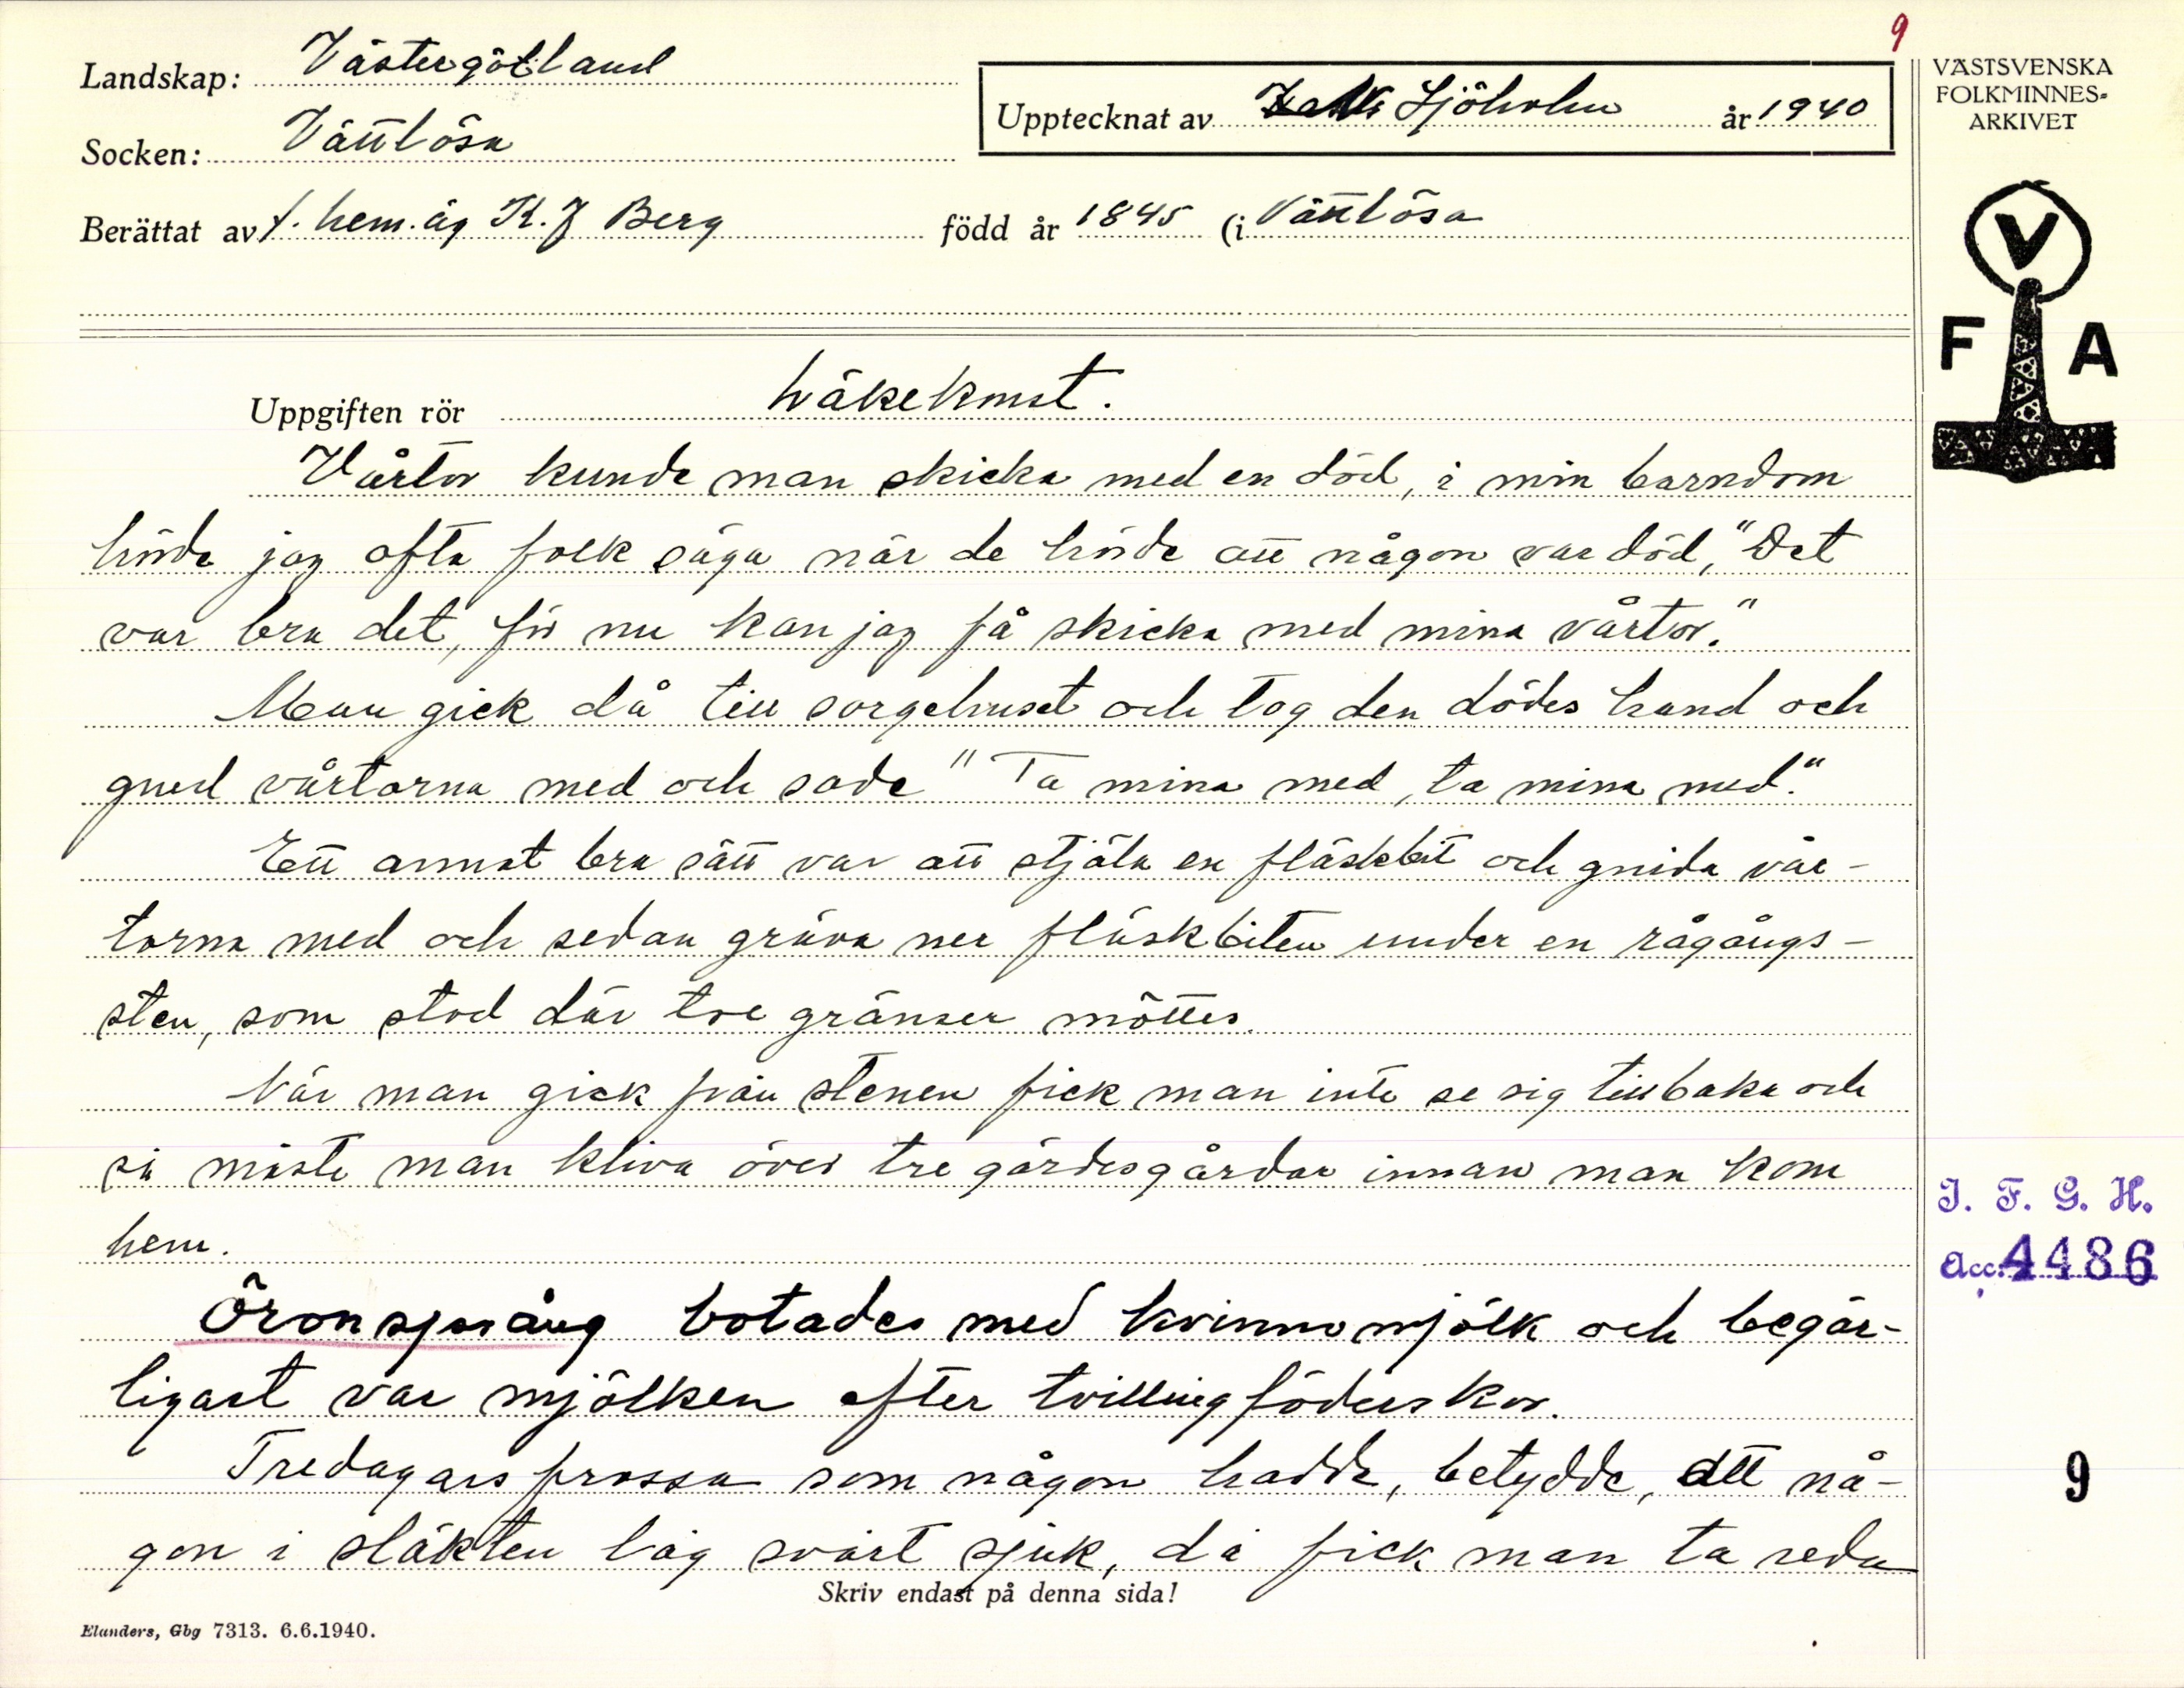 9
Landskap: Västergötland
Upptecknat av Sjöholm år 1940
Socken: Vättlösa
Berättat av f. hem. äg K. J Berg född år 1845 (i Vättlösa
VÄSTSVENSKA
FOLKMINNES-
ARKIVET
V
F A
Uppgiften rör Läkekonst.
Vårtor kunde man skicka med en död, i min barndom
hörde jag ofta folk säga när de hörde att någon var död, "Det
var bra det, för nu kan jag få skicka med mina vårtor."
Man gick då till sorgehuset och tog den dödes hand och
gned vårtorna med och sade "Ta mina med, ta mina med."
Ett annat bra sätt var att stjäla en fläskbit och gnida vår-
torna med och sedan gräva ner fläskbiten under en rågångs-
sten, som stod där tre gränser möttes.
När man gick från stenen fick man inte se sig tillbaka och
så måste man kliva över tre gärdesgårdar innan man kom
hem.
Öronsprång botades med kvinnomjölk och begär-
ligast var mjölken efter tvillingföderskor.
Tredagarsfrossa som någon hadde, betydde, att nå-
gon i släkten låg svårt sjuk, då fick man ta reda
I. F. G. H.
Acc. 4486
9
Skriv endast på denna sida!
Elanders, Gbg 7313. 6.6.1940.